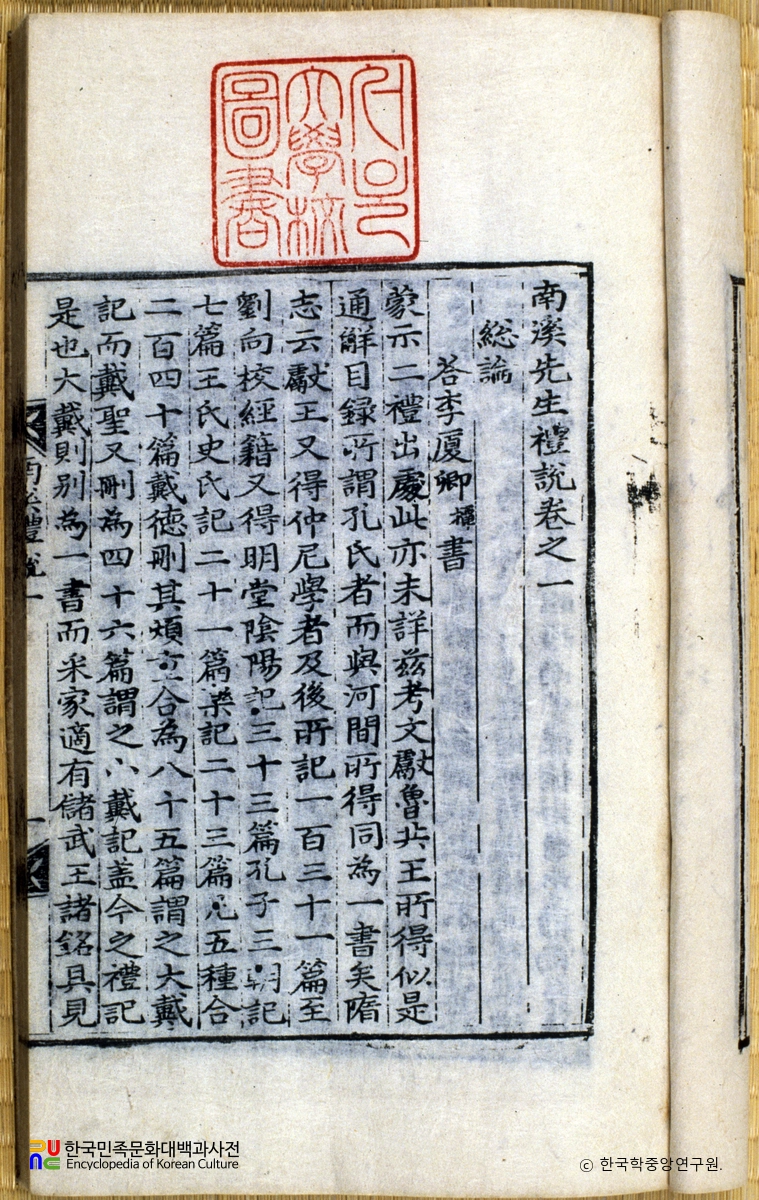 南溪先生禮說卷之一
総論
答李厦卿櫃書
蒙示二禮出處此亦未詳玆考文獻魯共王所得似是
通解目録所謂孔氏者而與河間所得同為一書矣隋
志云獻王又得仲尼學者及後所記一百三十一篇至
劉向校經籍又得明堂陰陽記三十三篇孔子三朝記
七篇王氏史氏記二十一篇樂記二十三篇凡五種合
二百四十篇戴德刪其煩合為八十五篇謂之大戴
記而戴聖又刪為四十六篇謂之小戴記盖今之禮記
是也大戴則別為一書而米家適有儲武王諸銘具見
南溪禮說一
圖書
大學校
한국민족문화대백과사전
Encyclopedia of Korean Culture
© 한국학중앙연구원.